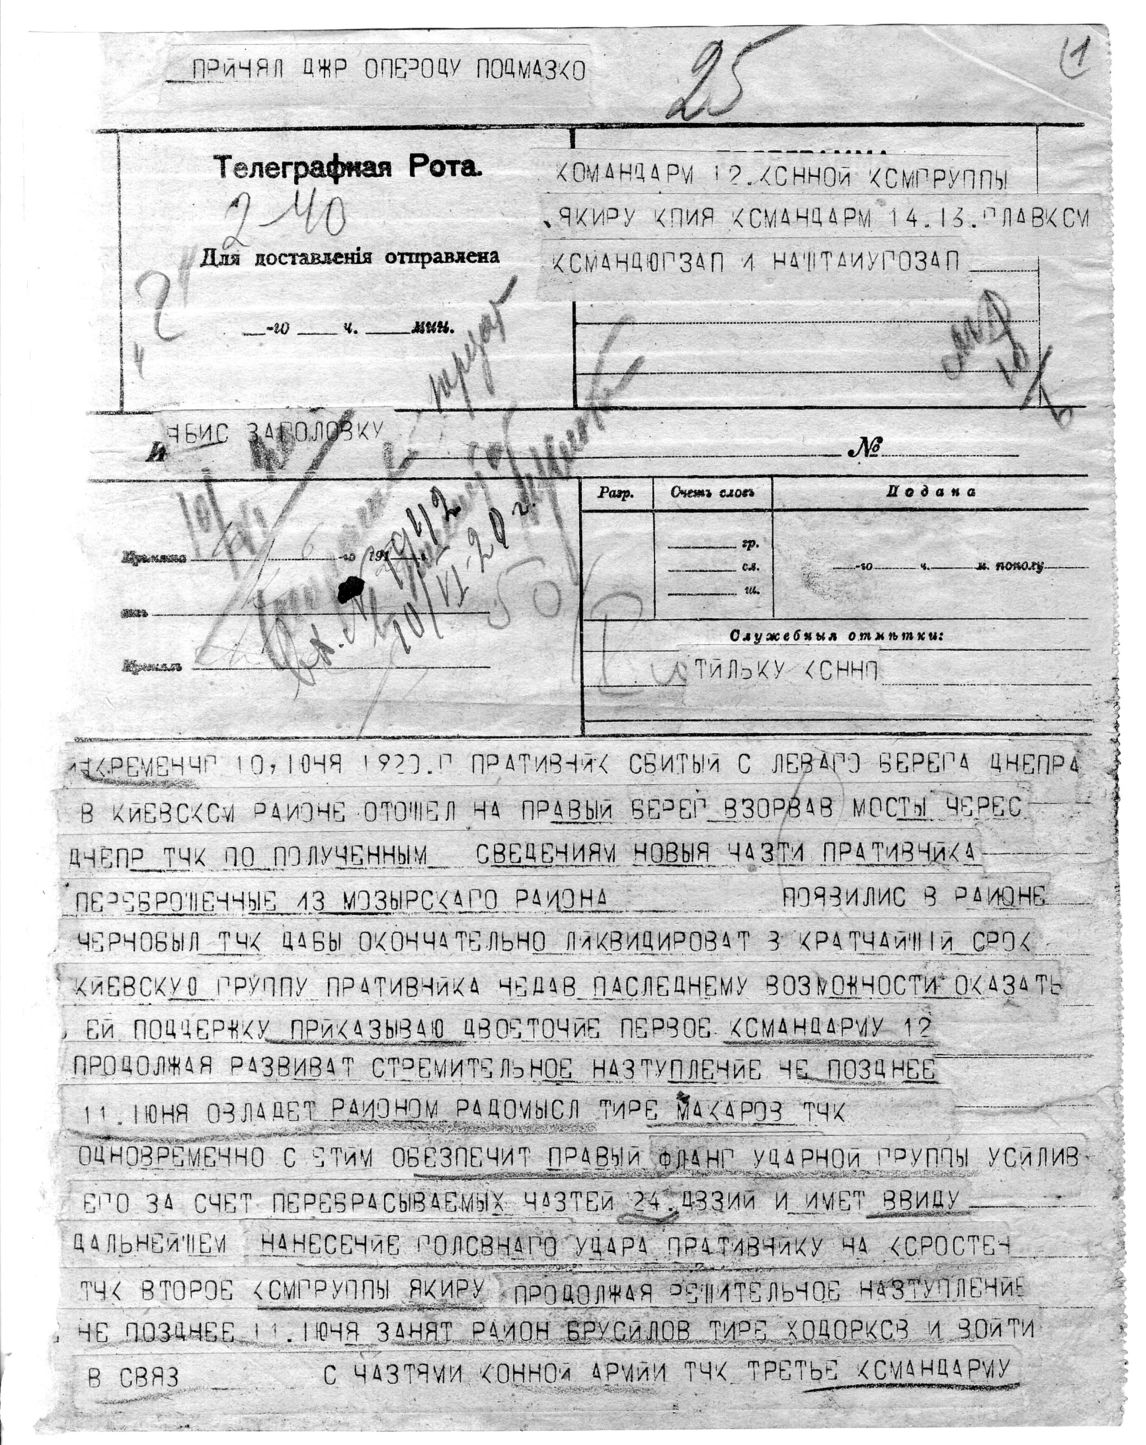 ПРИНЯЛ ДЖР ОПЕРОДУ ПОДМАЗКО
25
1
Телеграфная Рота.
2-40
Для доставленія отправлена
-го ч. мин.
КОМАНДАРМ 12.КСННОЙ КСМГРУППЫ
ЯКИРУ КПИЯ КСМАНДАРМ 14.13.ГЛАВКСМ
КСМАНДЮГЗАП И НАШТАИУГОЗАП
ЯБИС ЗАГОЛОВКУ
№
Разр.
Счетъ словъ
Подана
гр.
сл.
ш.
-го ч. м. пополу
Служебныя отмѣтки:
ТИЛЬКУ КСННП
Вх. № 1942
10/VI-20 г.
50
ИЗКРЕМЕНЧГ 10,ІЮНЯ 1920.Г ПРАТИВНИК СБИТЫЙ С ЛЕВАГО БЕРЕГА ДНЕПРА
В КИЕВСКСМ РАИОНЕ ОТОШЕЛ НА ПРАВЫЙ БЕРЕГ ВЗОРВАВ МОСТЫ ЧЕРЕС
ДНЕПР ТЧК ПО ПОЛУЧЕННЫМ СВЕДЕНИЯМ НОВЫЯ ЧАЗТИ ПРАТИВНИКА
ПЕРЕБРОШЕННЫЕ ИЗ МОЗЫРСКАГО РАИОНА ПОЯВИЛИС В РАИОНЕ
ЧЕРНОБЫЛ ТЧК ДАБЫ ОКОНЧАТЕЛЬНО ЛИКВИДИРОВАТ В КРАТЧАЙШІЙ СРОК
КИЕВСКУЮ ГРУППУ ПРАТИВНИКА НЕДАВ ПАСЛЕДНЕМУ ВОЗМОЖНОСТИ ОКАЗАТЬ
ЕЙ ПОДДЕРЖКУ ПРИКАЗЫВАЮ ДВОЕТОЧИЕ ПЕРВОЕ КСМАНДАРМУ 12
ПРОДОЛЖАЯ РАЗВИВАТ СТРЕМИТЕЛЬНОЕ НАЗТУПЛЕНИЕ НЕ ПОЗДНЕЕ
11.ІЮНЯ ОВЛАДЕТ РАИОНОМ РАДОМЫСЛ ТИРЕ МАКАРОВ ТЧК
ОДНОВРЕМЕННО С ЕТИМ ОБЕЗПЕЧИТ ПРАВЫЙ ФЛАНГ УДАРНОЙ ГРУППЫ УСИЛИВ
ЕГО ЗА СЧЕТ ПЕРЕБРАСЫВАЕМЫХ ЧАЗТЕЙ 24.ДВЗИЙ И ИМЕТ ВВИДУ
ДАЛЬНЕЙШЕМ НАНЕСЕНИЕ ГОЛСВНАГО УДАРА ПРАТИВНИКУ НА КСРОСТЕН
ТЧК ВТОРОЕ КСМГРУППЫ ЯКИРУ ПРОДОЛЖАЯ РЕШИТЕЛЬНОЕ НАЗТУПЛЕНИЕ
НЕ ПОЗДНЕЕ 11.ІЮНЯ ЗАНЯТ РАЙОН БРУСИЛОВ ТИРЕ ХОДОРКСВ И ВОЙТИ
В СВЯЗ С ЧАЗТЯМИ КОННОЙ АРМИИ ТЧК ТРЕТЬЕ КСМАНДАРМУ